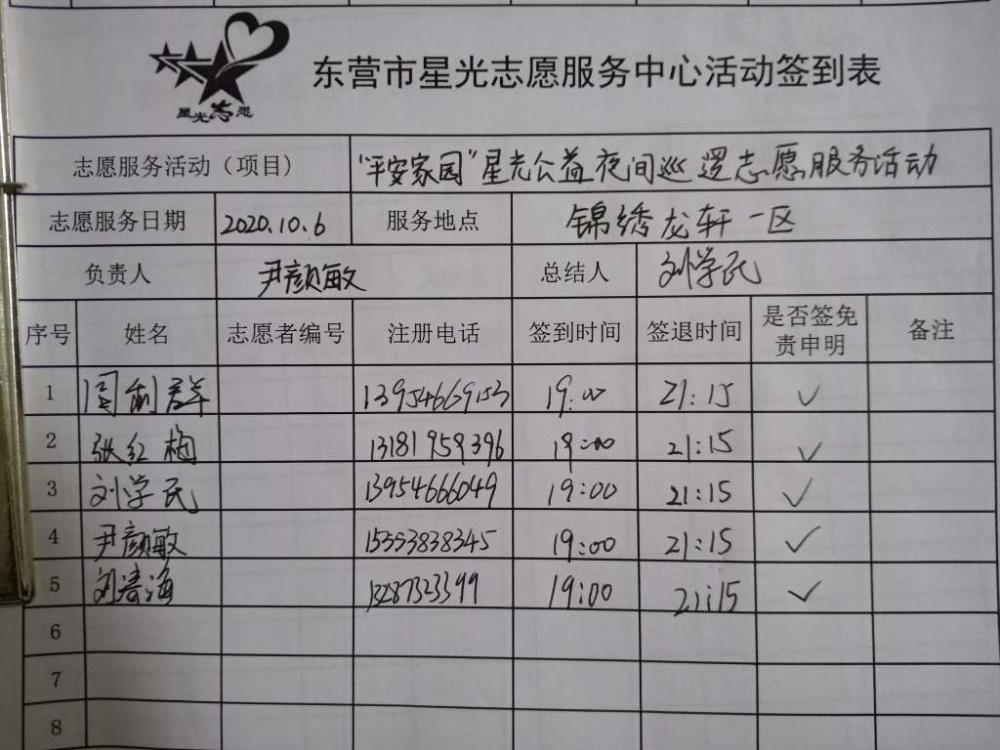 星光志愿
东营市星光志愿服务中心活动签到表
志愿服务活动（项目） “平安家园”星光公益夜间巡逻志愿服务活动
志愿服务日期 2020.10.6 服务地点 锦绣龙轩一区
负责人 尹颜敏 总结人 刘学民
序号 姓名 志愿者编号 注册电话 签到时间 签退时间 是否签免责申明 备注
1 周利群 13954669153 19:00 21:15 ✓
2 张红梅 13181959396 19:00 21:15 ✓
3 刘学民 13954666049 19:00 21:15 ✓
4 尹颜敏 15353838345 19:00 21:15 ✓
5 刘涛海 13287323399 19:00 21:15 ✓
6
7
8